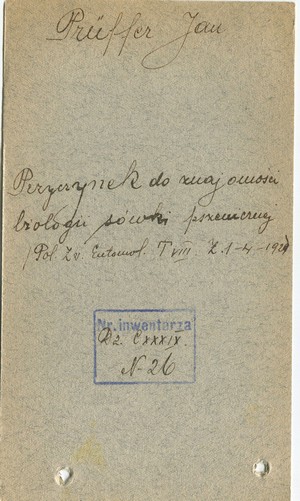 Prüffer Jan
Przyczynek do znajomości
biologii sówki pszenicznej
(Pol. Zw. Entomol. T VIII Z. 1-4 - 1929)
Nr. inwentarza
Dz. CXXXIX.
N-26